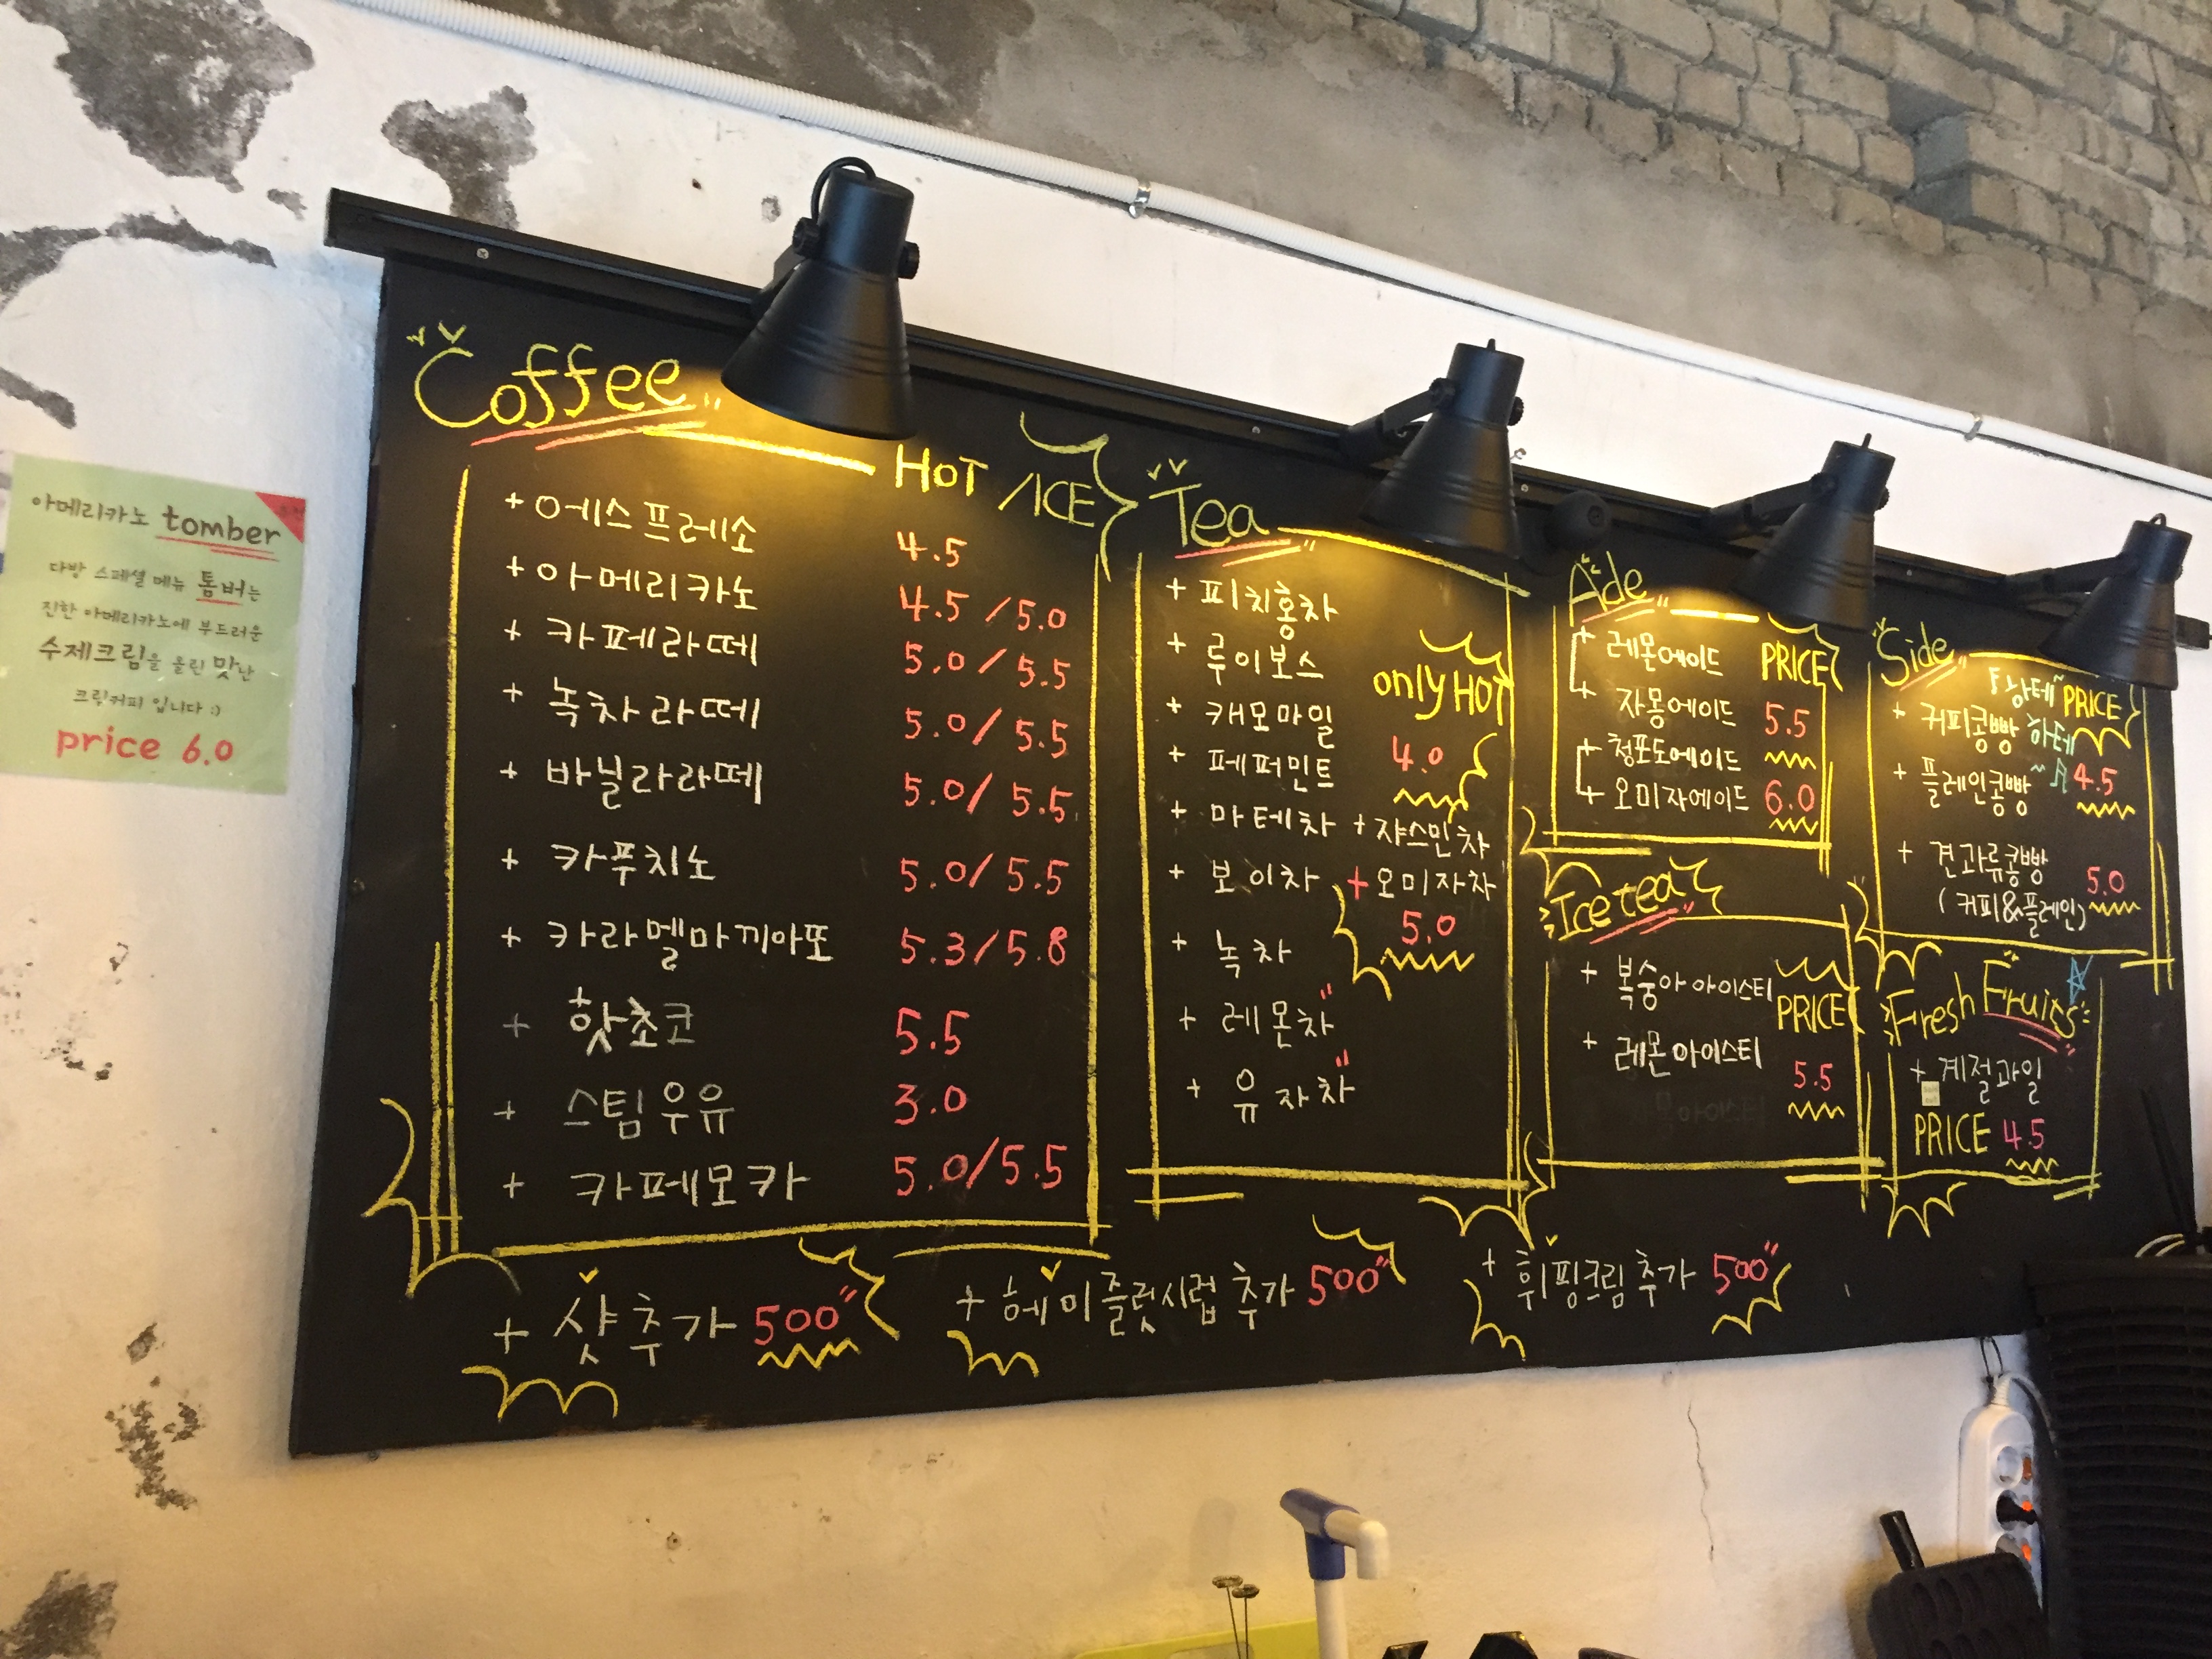 아메리카노 tomber
다방 스페셜 메뉴 톰버는
진한 아메리카노에 부드러운
수제크림을 올린 맛난
크림커피 입니다 :)
price 6.0
Coffee
HOT /ICE
+ 에스프레소 4.5
+ 아메리카노 4.5/5.0
+ 카페라떼 5.0/5.5
+ 녹차라떼 5.0/5.5
+ 바닐라라떼 5.0/5.5
+ 카푸치노 5.0/5.5
+ 카라멜마끼아또 5.3/5.8
+ 핫초코 5.5
+ 스팀우유 3.0
+ 카페모카 5.0/5.5
Tea
+ 피치홍차
+ 루이보스
only HOT
+ 캐모마일
+ 페퍼민트 4.0
+ 마테차 + 쟈스민차
+ 보이차 + 오미자차
5.0
+ 녹차
+ 레몬차"
+ 유자차"
Ade
PRICE
+ 레몬에이드
+ 자몽에이드 5.5
+ 청포도에이드
+ 오미자에이드 6.0
Ice tea
+ 복숭아 아이스티
PRICE
+ 레몬아이스티
5.5
자몽아이스티
Side
PRICE
+ 커피콩빵
+ 플레인콩빵 4.5
+ 견과류콩빵
(커피&플레인) 5.0
Fresh Fruits
+ 계절과일
PRICE 4.5
+ 샷추가 500"
+ 헤이즐럿시럽 추가 500"
+ 휘핑크림 추가 500"